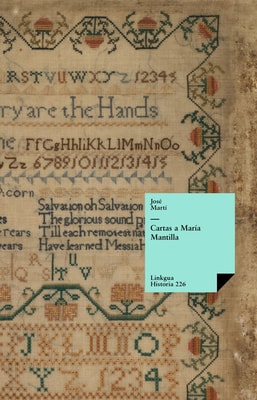 RSTUVWXYZ12345
ry are the Hands
FfGgHhIiKkLlMmNnOo
Zz 6789101112131415
Acorn
Salvation oh Salvation
The glorious sound
rears Till each remotest nat
years Have learned Messiah
José
Martí
—
Cartas a María
Mantilla
Linkgua
Historia 226
JKLMNOP
Y 1234